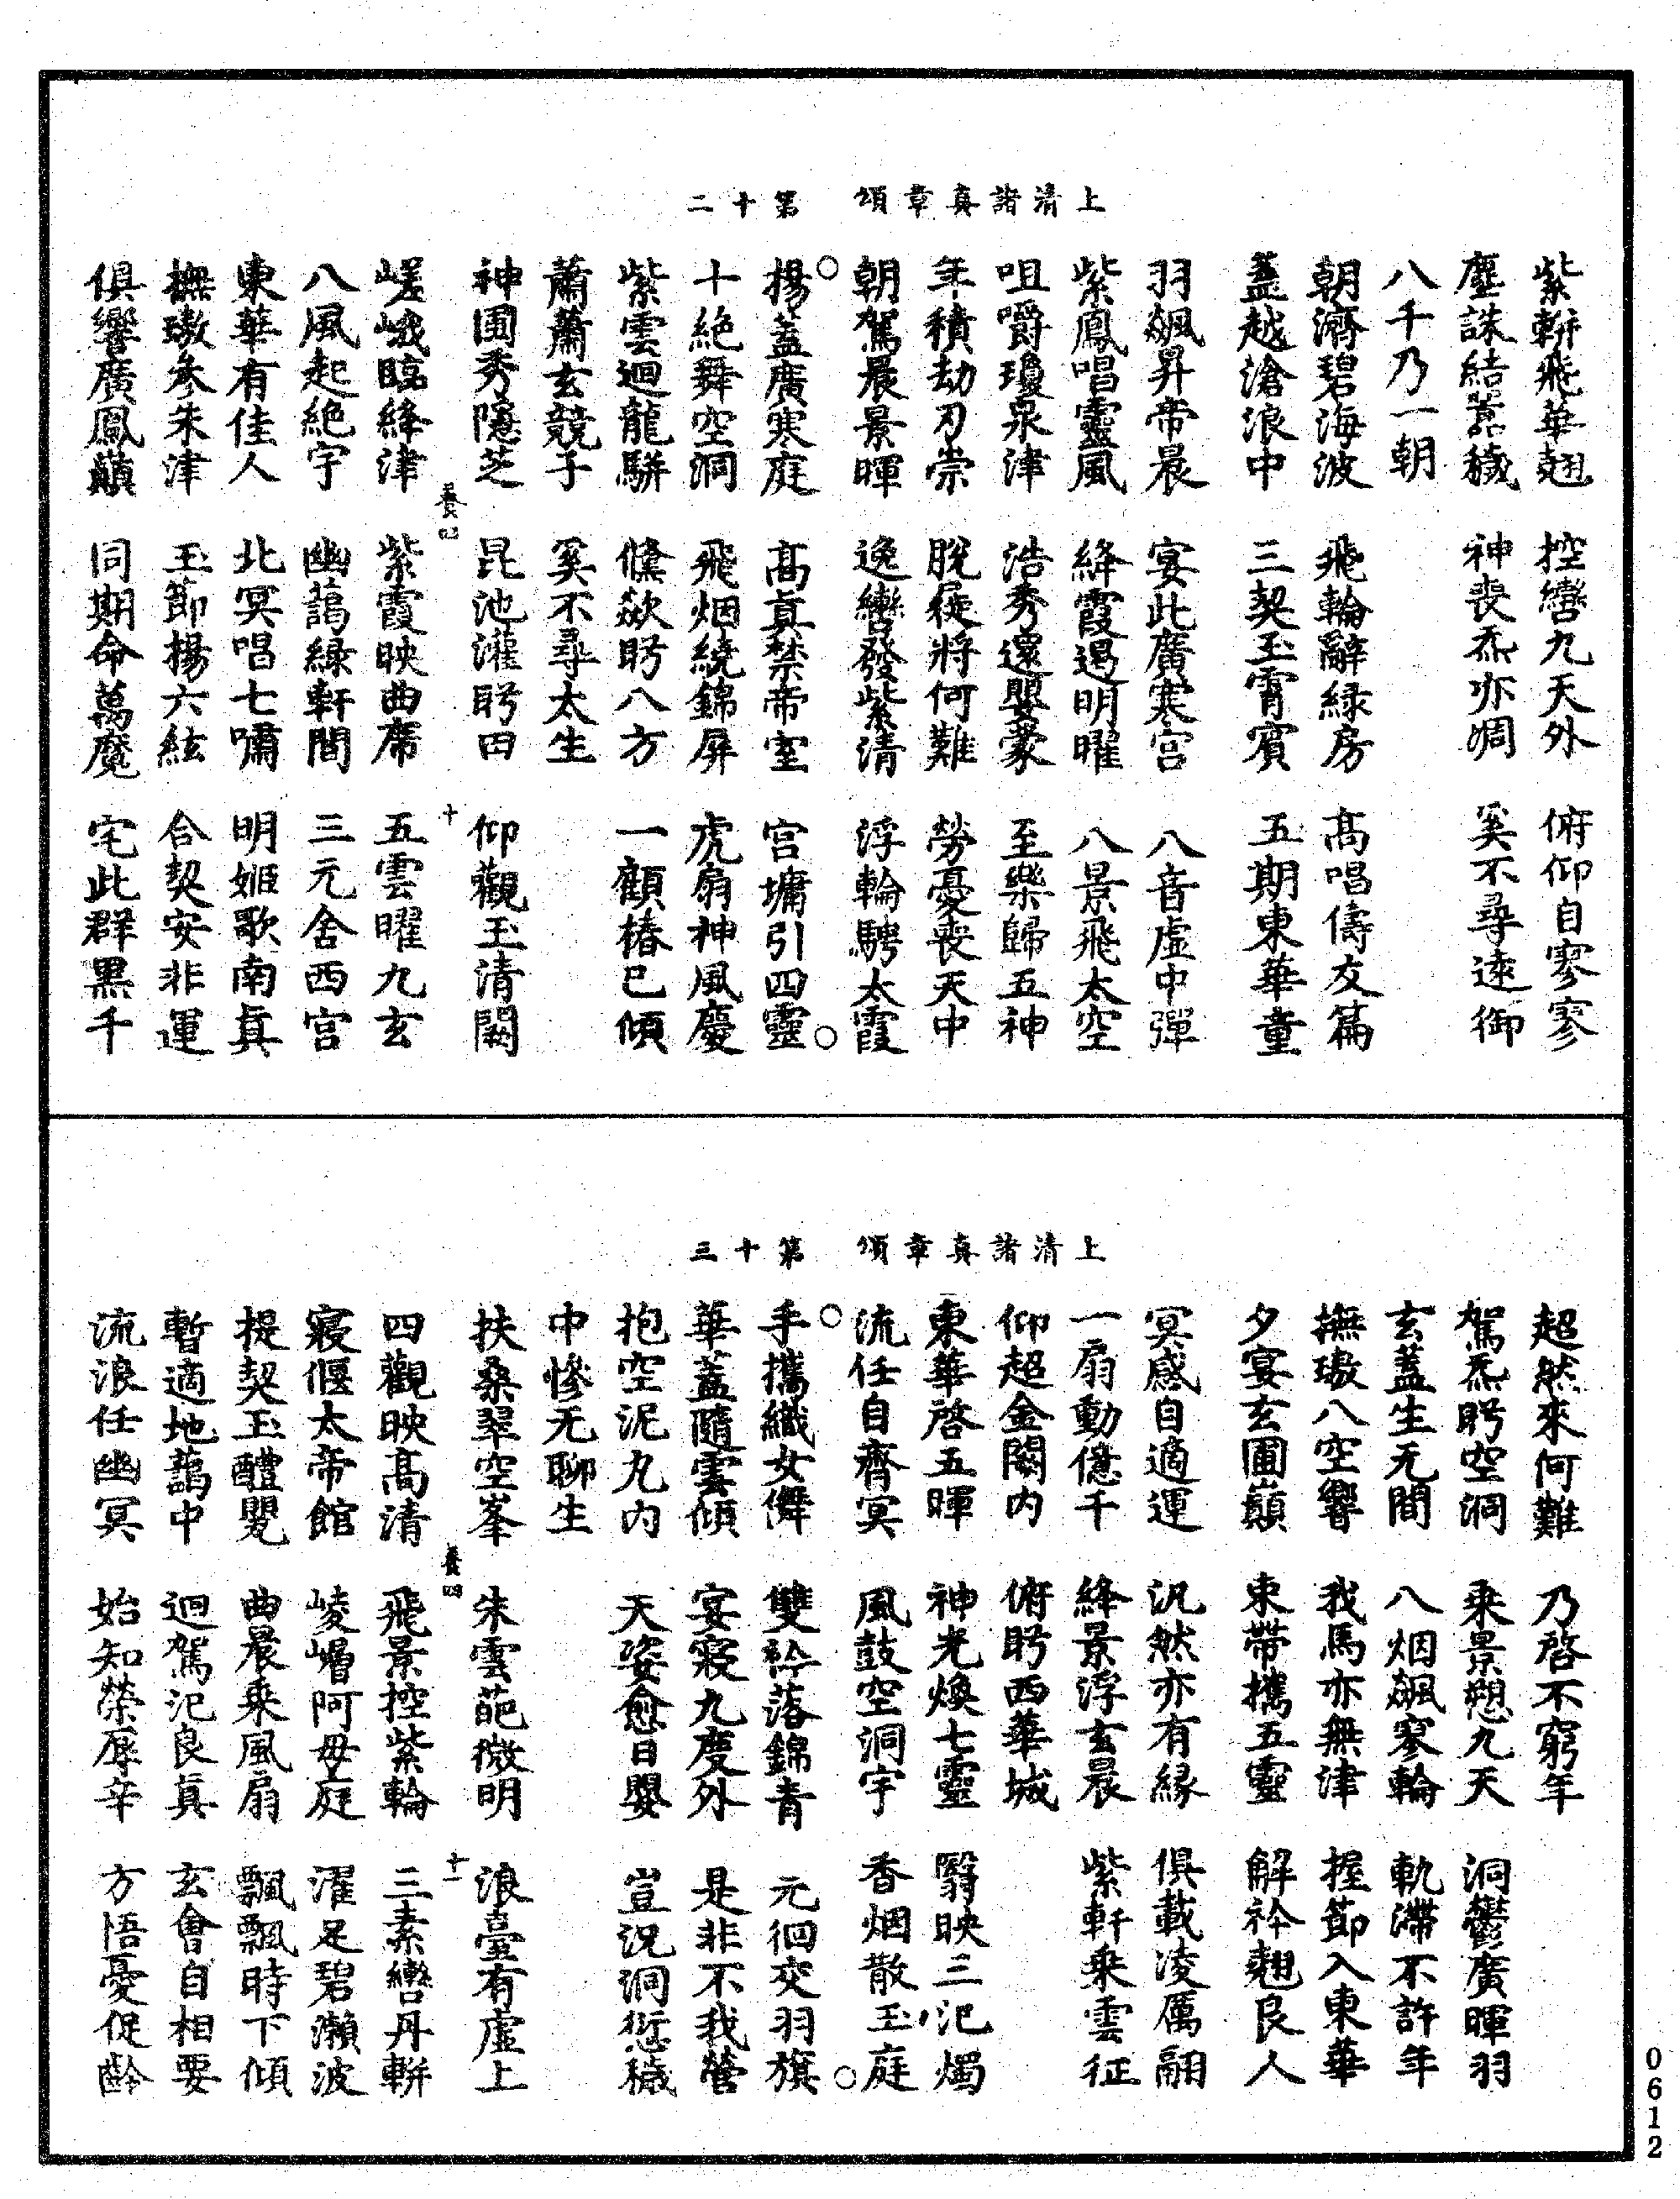 上清諸真章頌　第十二
紫軿飛華翹　控轡九天外　俯仰自寥寥
塵誅結囂穢　神喪炁亦凋　奚不尋遠御
八千乃一朝
朝濟碧海波　飛輪辭綠房　高唱儔友篇
蓋越滄浪中　三契玉霄賓　五期東華童
羽飆昇帝晨　宴此廣寒宮　八音虛中彈
紫鳳唱靈風　絳霞遏明曜　八景飛太空
咀嚼瓊泉津　浩秀還嬰蒙　至樂歸五神
年積劫刃崇　脫屣將何難　勞憂喪天中
朝駕晨景暉　逸轡發紫清　浮輪騁太霞
○揚蓋廣寒庭　高真禁帝室　宮墉引四靈○
十絕舞空洞　飛烟繞錦屏　虎扇神風慶
紫雲迴龍駢　儻歘眄八方　一顧椿已傾
蕭蕭玄競子　奚不尋太生
神圃秀隱芝　昆池灌眄田　仰觀玉清闕
養四　十
嵯峨臨絳津　紫霞映曲席　五雲曜九玄
八風起絕宇　幽藹綠軒間　三元舍西宮
東華有佳人　北冥唱七嘯　明姬歌南真
撫璈參朱津　玉節揚六絃　合契安非運
俱響廣鳳巔　同期命萬魔　宅此群黑千
上清諸真章頌　第十三
超然來何難　乃啓不窮年
駕炁眄空洞　乘景愬九天　洞鬱廣暉羽
玄蓋生无間　八烟飆寥輪　軌滯不許年
撫璈八空響　我馬亦無津　握節入東華
夕宴玄圃巔　束帶攜五靈　解衿翹良人
冥感自適運　汎然亦有緣　俱載淩厲翮
一扇動億千　絳景浮玄晨　紫軒乘雲征
仰超金闕内　俯眄西華城
東華啓五暉　神光煥七靈　翳映三汜燭
流任自齊冥　風鼓空洞宇　香烟散玉庭
○手攜織女儛　雙衿落錦青　元徊突羽旗○
華蓋隨雲傾　宴寢九度外　是非不我營
抱空泥丸内　天姿愈日嬰　豈況洞愆穢
中慘无聊生
扶桑翠空峯　朱雲葩微明　浪臺有虛上
養四　十一
四觀映高清　飛景控紫輪　三素轡丹軿
寢偃太帝館　崚嵋阿母庭　濯足碧瀨波
提契玉醴甖　曲晨乘風扇　飄飄時下傾
暫適地藹中　迴駕汜良真　玄會自相要
流浪任幽冥　始知榮辱辛　方悟憂促齡
0612